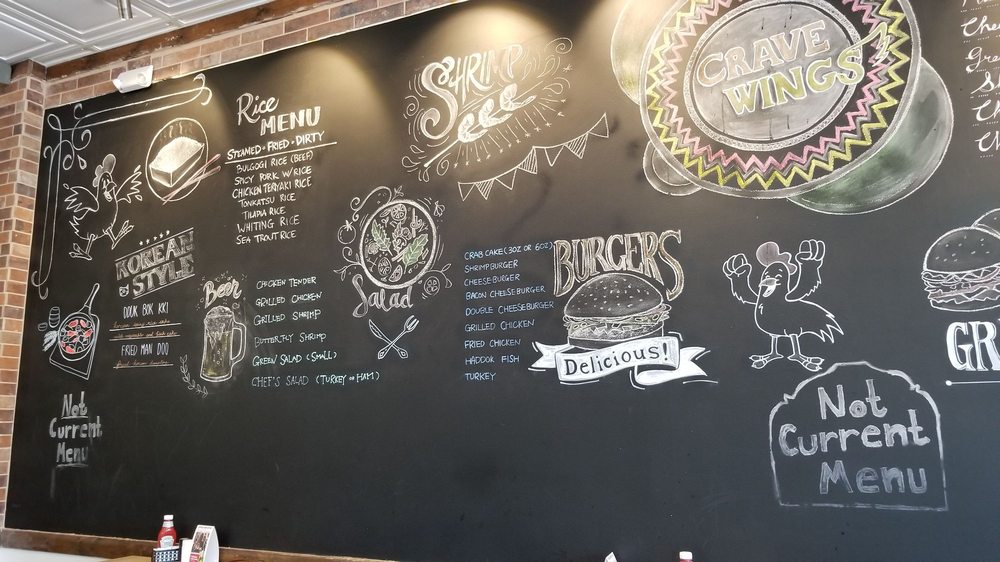 Rice
MENU
STEAMED • FRIED • DIRTY
BULGOGI RICE (BEEF)
SPICY PORK W/RICE
CHICKEN TERIYAKI RICE
TONKATSU RICE
TILAPIA RICE
WHITING RICE
SEA TROUT RICE
KOREAN
STYLE
DDUK BOK KKI
FRIED MAN DOO
Not
Current
Menu
Beer
SHRIMP
Salad
CHICKEN TENDER
GRILLED CHICKEN
GRILLED SHRIMP
BUTTERFLY SHRIMP
GREEN SALAD (SMALL)
CHEF'S SALAD (TURKEY OR HAM)
CRAVE
WINGS
BURGERS
Delicious!
CRAB CAKE (3OZ OR 6OZ)
SHRIMP BURGER
CHEESE-BURGER
BACON CHEESE-BURGER
DOUBLE CHEESEBURGER
GRILLED CHICKEN
FRIED CHICKEN
HADDOK FISH
TURKEY
Not
Current
Menu